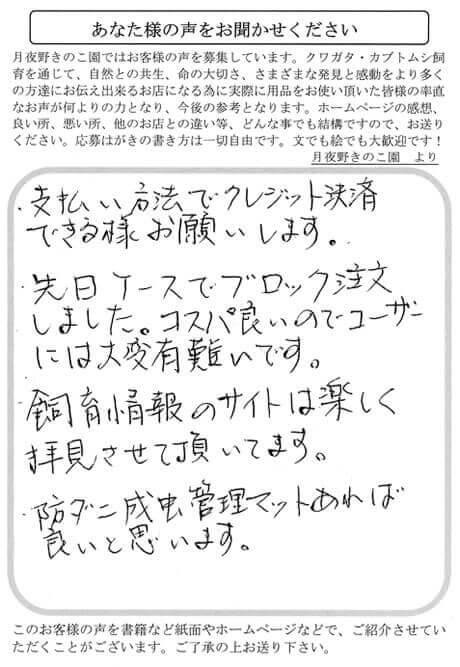 あなた様の声をお聞かせください
月夜野きのこ園ではお客様の声を募集しています。クワガタ・カブトムシ飼
育を通じて、自然との共生、命の大切さ、さまざまな発見と感動をより多く
の方達にお伝え出来るお店になる為に実際に用品をお使い頂いた皆様の率直
なお声が何よりの力となり、今後の参考となります。ホームページの感想、
良い所、悪い所、他のお店との違い等、どんな事でも結構ですので、お送り
ください。応募はがきの書き方は一切自由です。文でも絵でも大歓迎です！
月夜野きのこ園　より
・支払い方法でクレジット決済
できる様お願いします。
・先日ケースでブロック注文
しました。コスパ良いのでユーザー
には大変有難いです。
・飼育情報のサイトは楽しく
拝見させて頂いてます。
・防ダニ成虫管理マットあれば
良いと思います。
このお客様の声を書籍など紙面やホームページなどで、ご紹介させてい
ただくことがございます。ご了承の上お送り下さい。